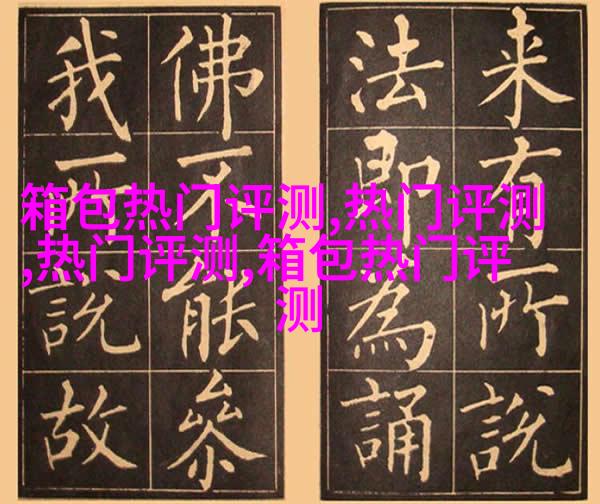 箱包热门评测,热门评测
,热门评测,箱包热门评
测
来有所說
法即為誦
佛能參
我說故